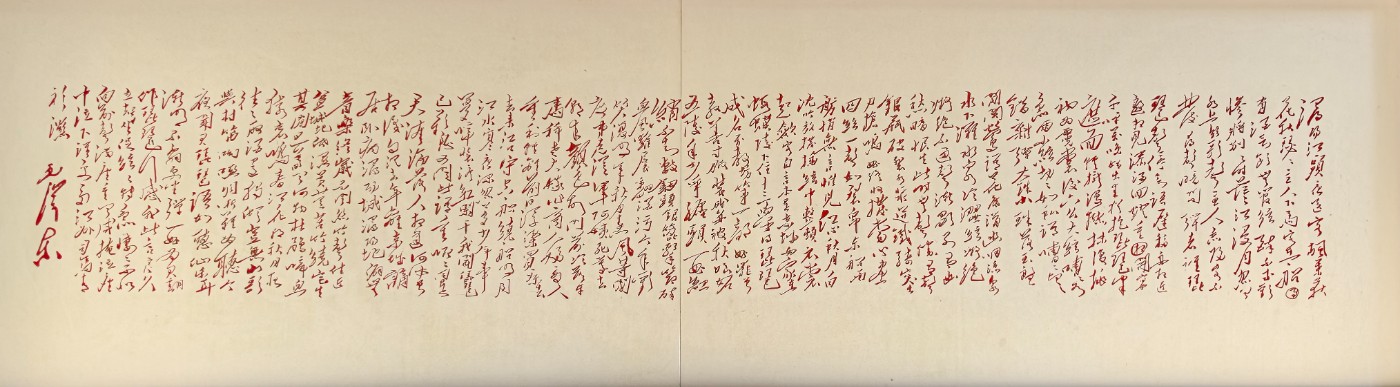 潯陽江頭夜送客楓葉荻
花秋瑟瑟主人下馬客在船
酒欲飲無管絃醉不成歡
慘將別別時茫茫江浸月忽聞
水上琵琶聲主人忘歸客不
發尋聲暗問彈者誰琵
琶聲停欲語遲移船相近
邀相見添酒回燈重開宴
千呼萬喚始出來猶抱琵琶半
遮面
初為霓裳後六么大絃嘈嘈如
急雨小絃切切如私語嘈嘈切切
錯雜彈大珠小珠落玉盤
間關鶯語花底滑幽咽泉流
水下灘水泉冷澀絃凝絕
凝絕不通聲漸歇別有幽
愁暗恨生此時無聲勝有聲
銀瓶乍破水漿迸鐵騎突出
刀槍鳴曲終收撥當心畫
四絃一聲如裂帛東船西
舫悄無言惟見江心秋月白
沈吟放撥插絃中整頓衣裳
起斂容自言本是京城女家在
蝦蟆陵下住十三學得琵琶
成名屬教坊第一部曲罷曾
教善才服妝成每被秋娘妒
五陵年少爭纏頭一曲紅
綃不知數鈿頭銀篦擊節碎
血色羅裙翻酒污今年歡
笑復明年秋月春風等閒
度弟走從軍阿姨死暮去
朝來顏色故門前冷落車
馬稀老大嫁作商人婦商人
重利輕別離前月浮梁買茶去
去來江口守空船繞船明月
江水寒夜深忽夢少年事
夢啼妝淚紅闌干我聞琵琶
已歎息又聞此語重唧唧同是
天涯淪落人相逢何必曾
相識我從去年辭帝京謫
居臥病潯陽城潯陽地僻無
音樂終歲不聞絲竹聲住近
湓城地低濕黃蘆苦竹繞宅生
其間旦暮聞何物杜鵑啼血
猿哀鳴春江花朝秋月夜
往往取酒還獨傾豈無山歌
與村笛嘔啞嘲哳難為聽今
夜聞君琵琶語如聽仙樂耳
暫明莫辭更坐彈一曲為君翻
作琵琶行感我此言良久
立卻坐促絃絃轉急淒淒不似
向前聲滿座重聞皆掩泣座中
泣下誰最多江州司馬青
衫濕
毛澤東